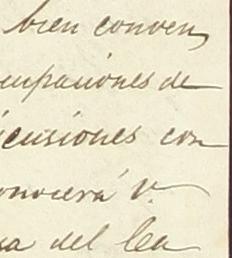 bien conven
cupaciones de
icusiones con
onocerá V.
sa del lea